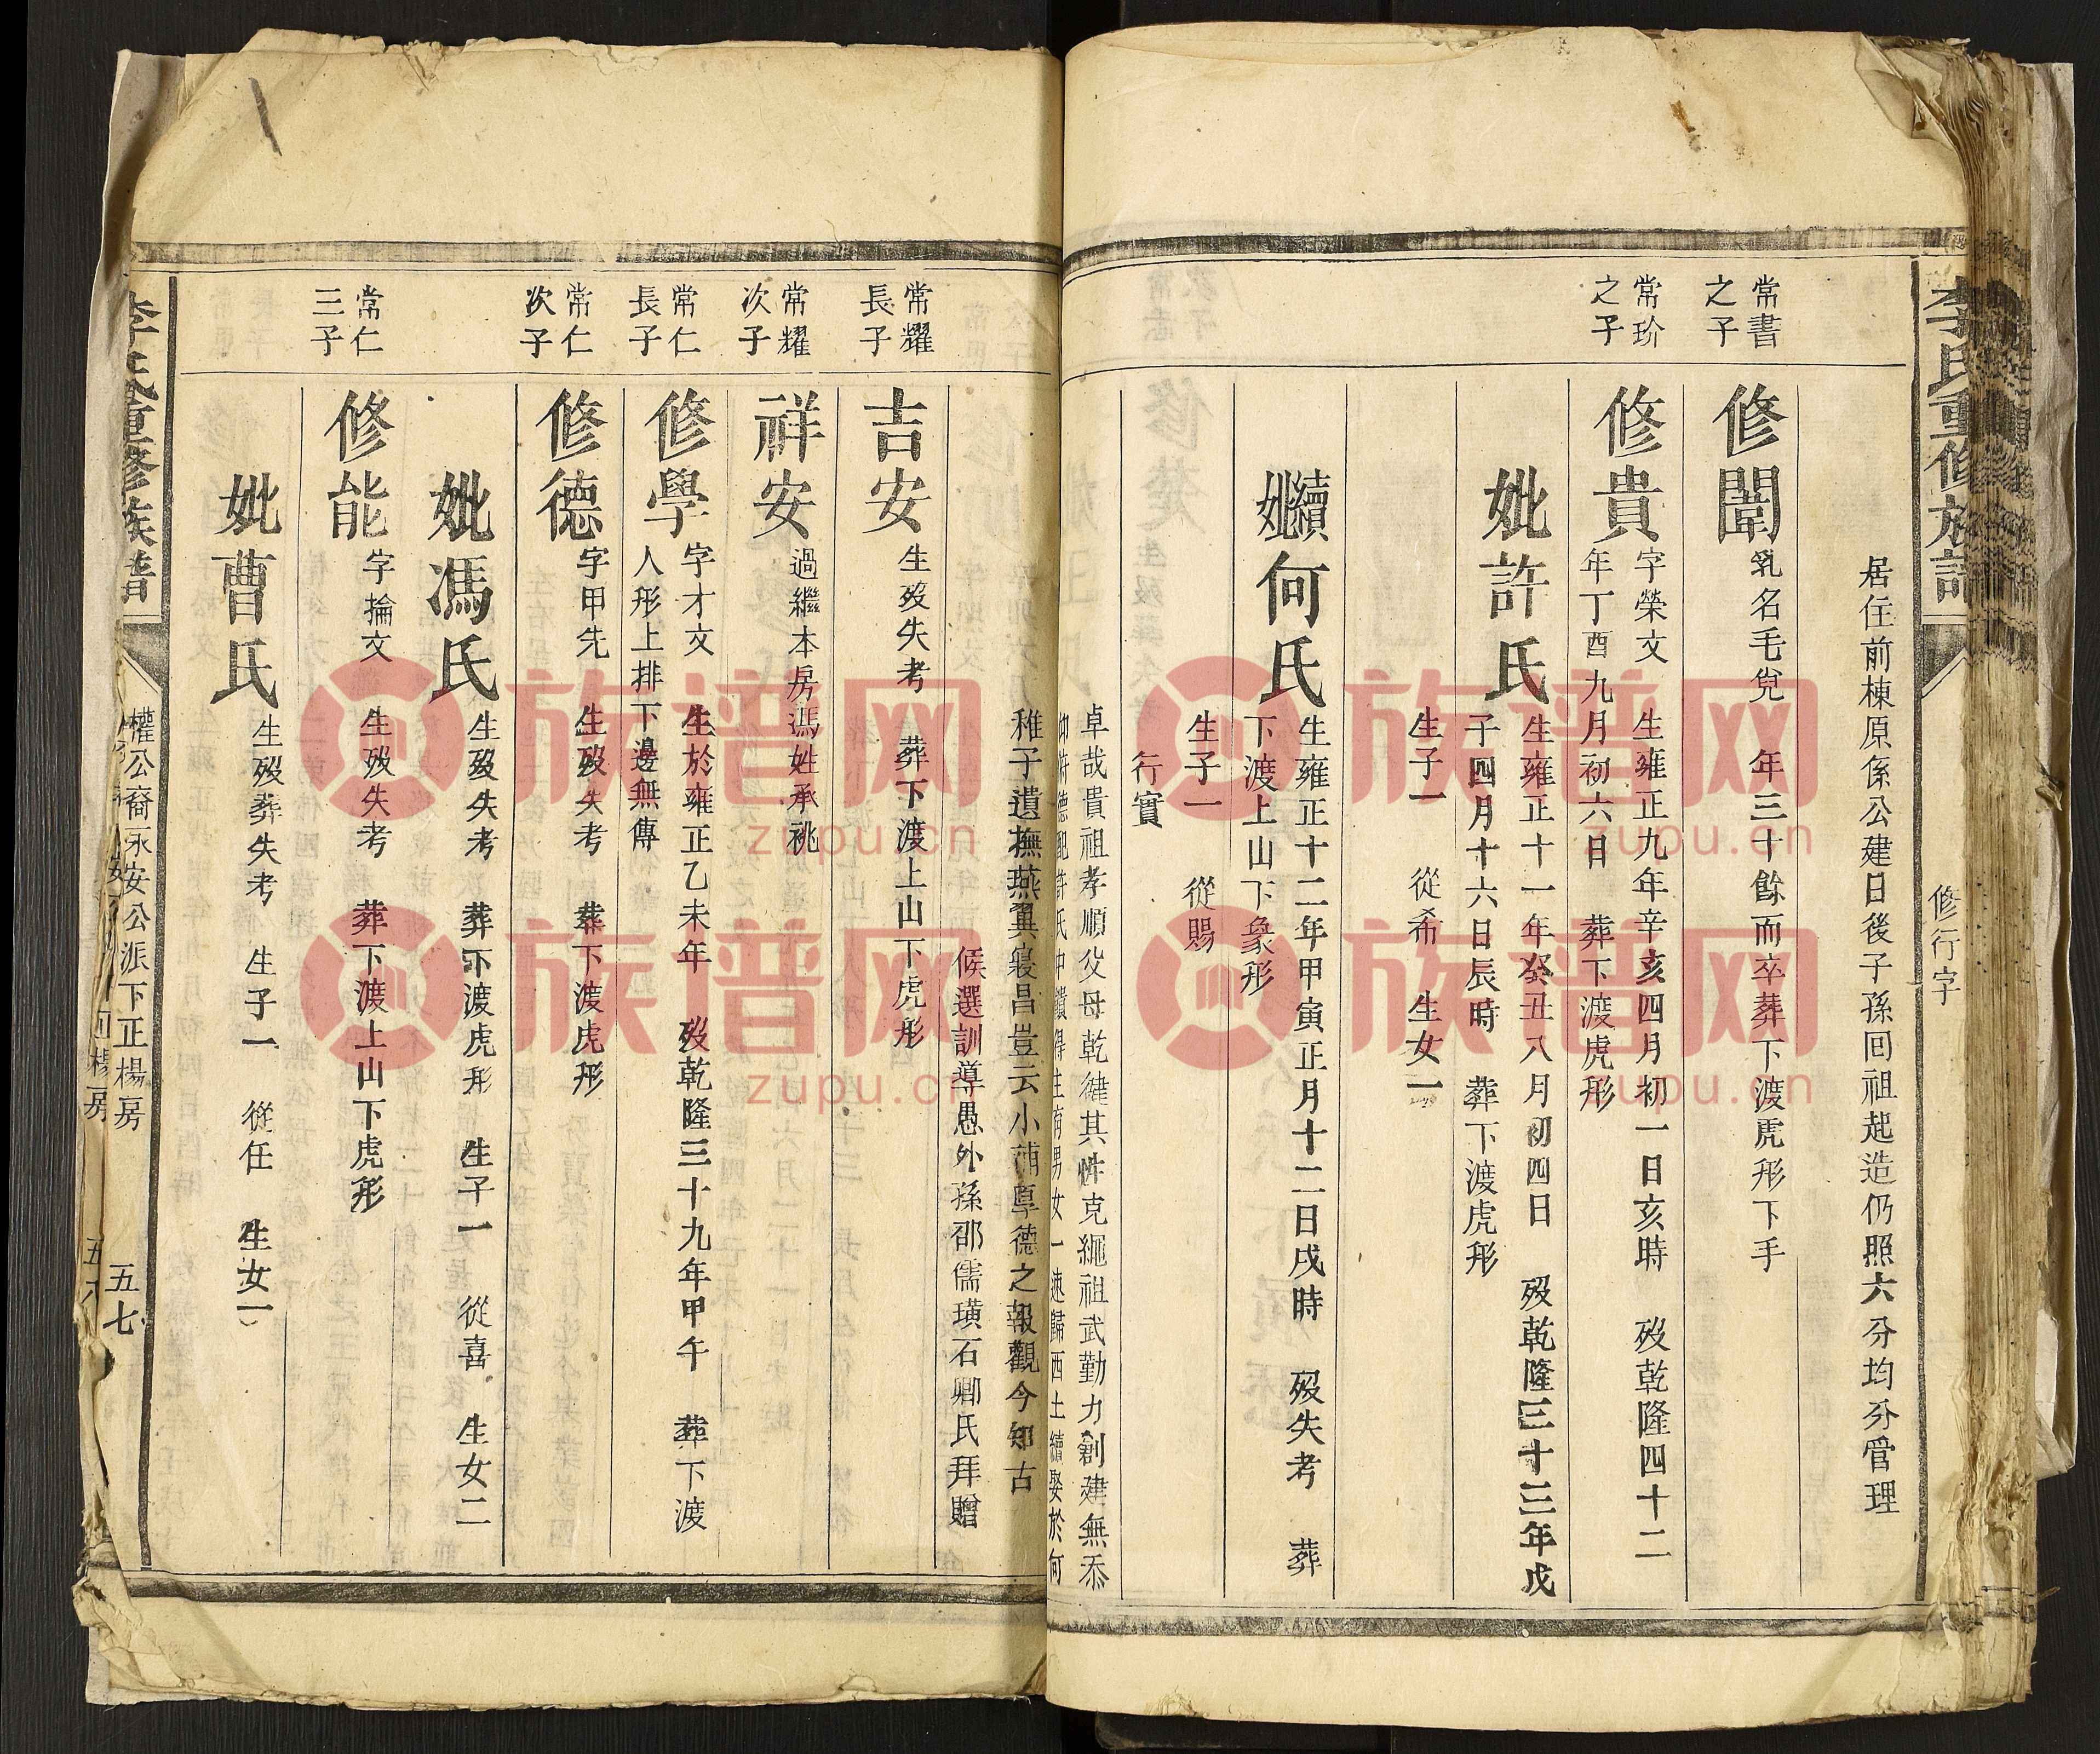 李氏重修族譜
修行字
居住前棟原係公建日後子孫回祖起造仍照六分均分管理
常書
之子
修闈
乳名毛兒 年三十餘而卒葬下渡虎形下手
常玠
之子
修貴
字榮文 生雍正九年辛亥四月初一日亥時 歿乾隆四十二
年丁酉九月初六日 葬下渡虎形
妣許氏
生雍正十一年癸丑八月初四日 歿乾隆三十三年戊
子四月十六日辰時 葬下渡虎形
生子一 從希 生女一
續妣何氏
生雍正十二年甲寅正月十二日戌時 歿失考 葬
下渡上山下象形
生子一 從賜
行實
卓哉貴祖孝順父母乾健其性克繩祖武勤力創建無忝
德配許氏中饋得主南男女一速歸西土續娶於何
稚子遺撫燕翼寢昌豈云小補厚德之報觀今知古
候選訓導愚外孫邵儒璜石卿氏拜贈
常耀
長子
吉安
生歿失考 葬下渡上山下虎形
常耀
次子
祥安
過繼本房馮姓承祧
常仁
長子
修學
字才文 生於雍正乙未年 歿乾隆三十九年甲午 葬下渡
人形上排下邊無傳
常仁
次子
修德
字甲先 生歿失考 葬下渡虎形
妣馮氏
生歿失考 葬下渡虎形 生子一 從喜 生女二
常仁
三子
修能
字掄文 生歿失考 葬下渡上山下虎形
妣曹氏
生歿葬失考 生子一 從任 生女一
李氏重修族譜
權公裔永安公派下正楊房
五七
五八
族谱网
zupu.cn
族谱网
zupu.cn
族谱网
zupu.cn
族谱网
zupu.cn